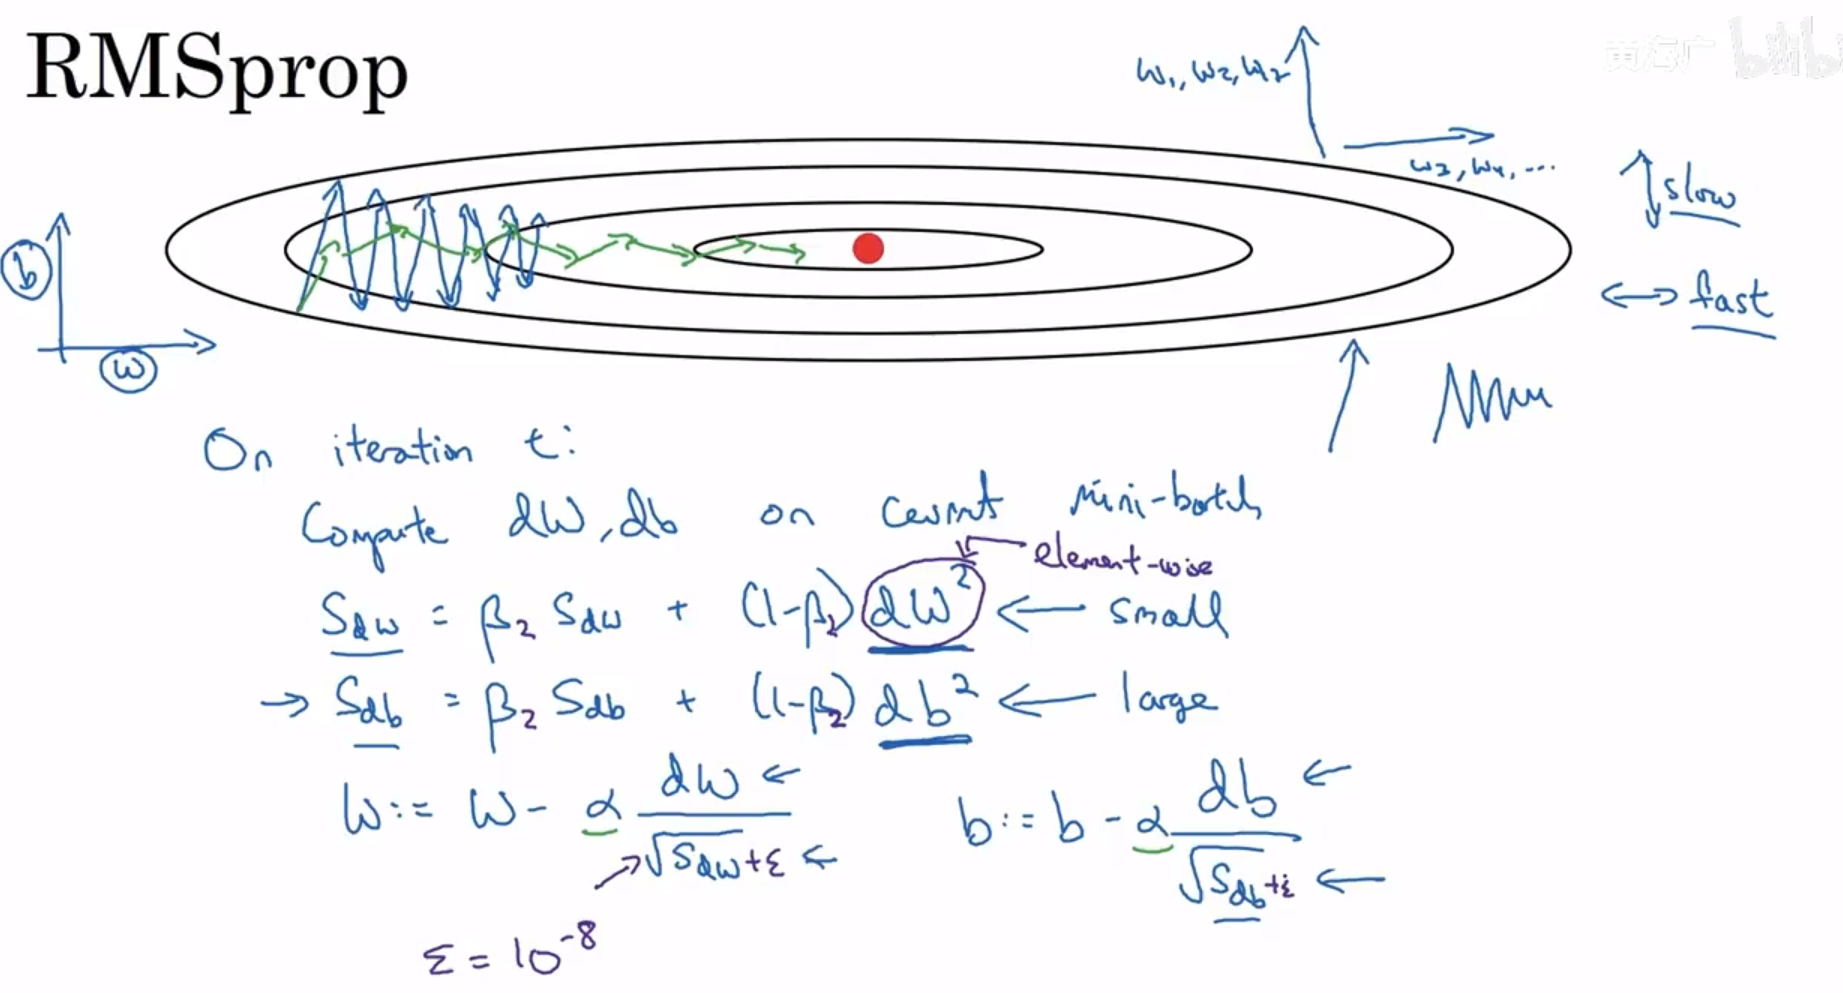 RMSprop
黄海广 bilibili
w₁, w₂, w₂
w₃, w₄, ...
slow
fast
b
w
On iteration t:
Compute dW, db on current mini-batch
element-wise
S_dw = β₂ S_dw + (1-β₂) dW² ← small
→ S_db = β₂ S_db + (1-β₂) db² ← large
W := W - α dW / √S_dw + ε ←
b := b - α db / √S_db + ε ←
ε = 10⁻⁸